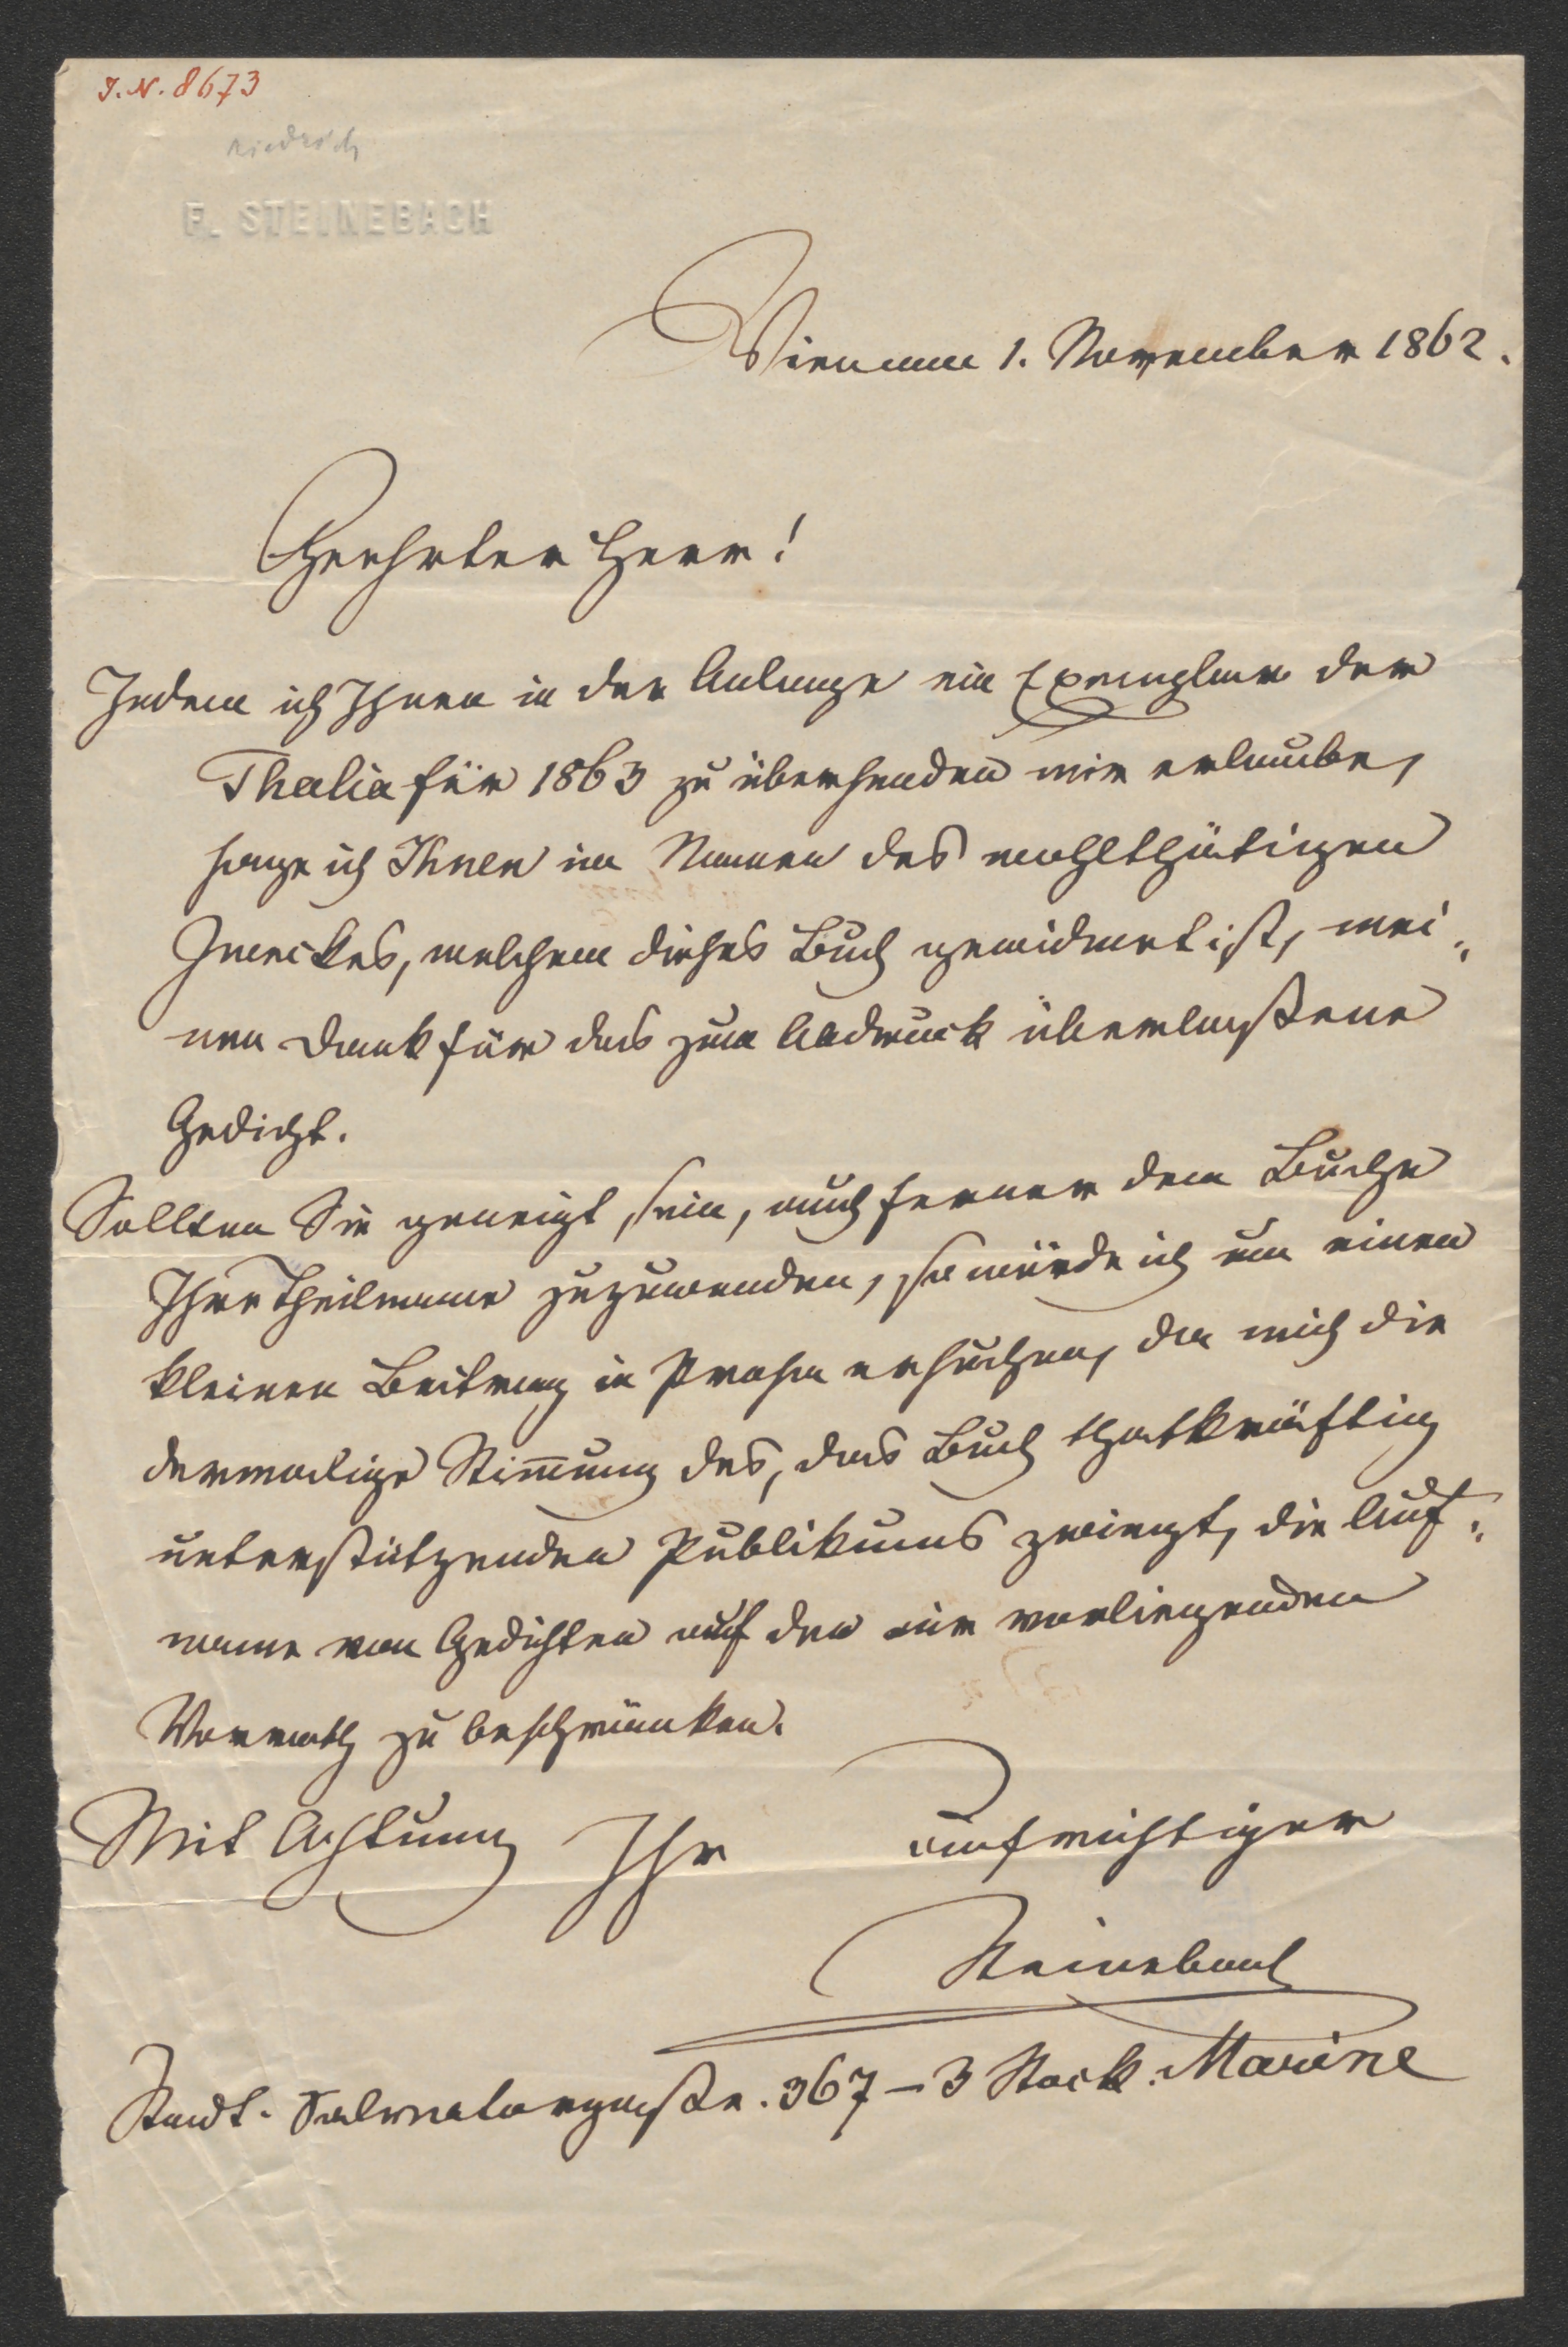 I.N. 8673
riedrich
F. STEINEBACH
Wien am 1. November 1862.
Geehrter Herr!
Indem ich Ihnen in der Anlange ein Exemplar der
Thalia für 1863 zu übersenden mir erlaube,
sage ich Ihnen im Namen des wohlthätigen
Zweckes, welchem dieses Buch gewidmet ist, mei„
nen Dank für das zum Abdruck überlassene
Gedicht.
Sollten Sie geneigt sein, auch ferner dem Buche
Ihre Theilname zuzuwenden, so würde ich um einen
kleinen Beitrag in Prosa ersuchen, da mich die
dermalige Stim̄ung des, das Buch thatkräftig
unterstützenden Publikums zwingt, die Auf„
name von Gedichten auf den mir vorliegenden
Vorrath zu beschränken.
Mit Achtung Ihr aufrichtiger
Steinebach
Stadt. Salvatorgasse. 367 – 3 Stock. Marine